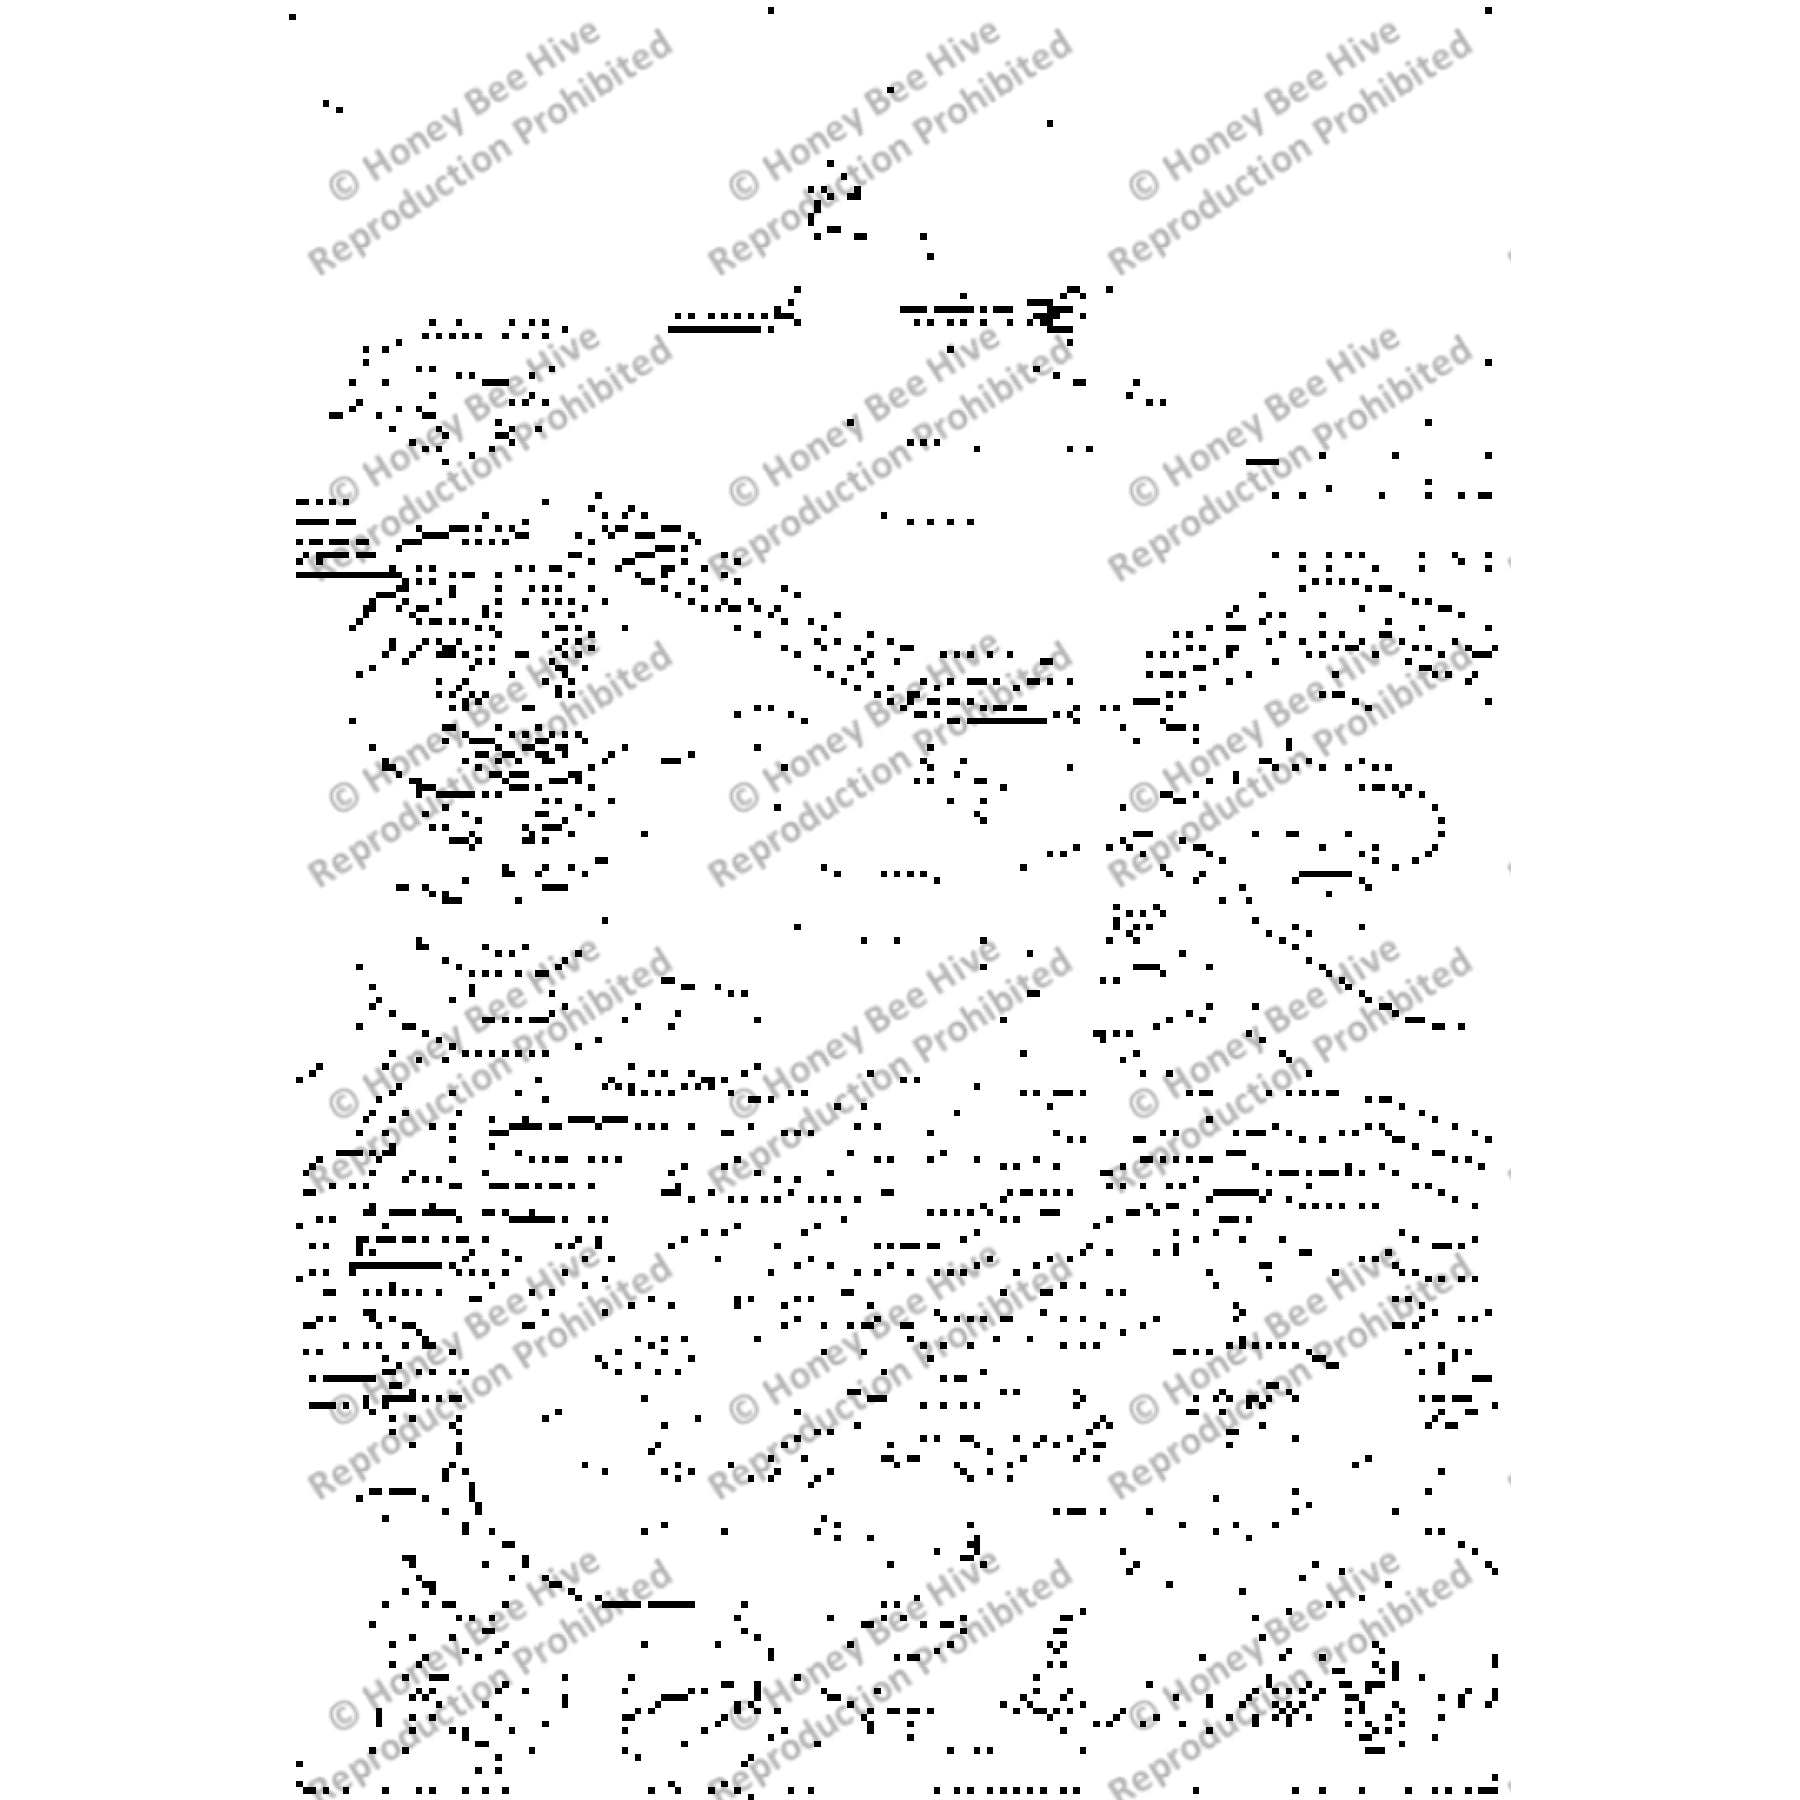 © Honey Bee Hive
Reproduction Prohibited
© Honey Bee Hive
Reproduction Prohibited
© Honey Bee Hive
Reproduction Prohibited
© Honey Bee Hive
Reproduction Prohibited
© Honey Bee Hive
Reproduction Prohibited
© Honey Bee Hive
Reproduction Prohibited
© Honey Bee Hive
Reproduction Prohibited
© Honey Bee Hive
Reproduction Prohibited
© Honey Bee Hive
Reproduction Prohibited
© Honey Bee Hive
Reproduction Prohibited
© Honey Bee Hive
Reproduction Prohibited
© Honey Bee Hive
Reproduction Prohibited
© Honey Bee Hive
Reproduction Prohibited
© Honey Bee Hive
Reproduction Prohibited
© Honey Bee Hive
Reproduction Prohibited
© Honey Bee Hive
Reproduction Prohibited
© Honey Bee Hive
Reproduction Prohibited
© Honey Bee Hive
Reproduction Prohibited